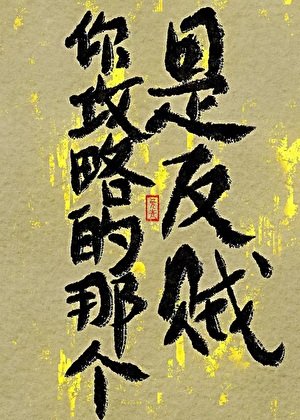 你攻略的那个
是反贼